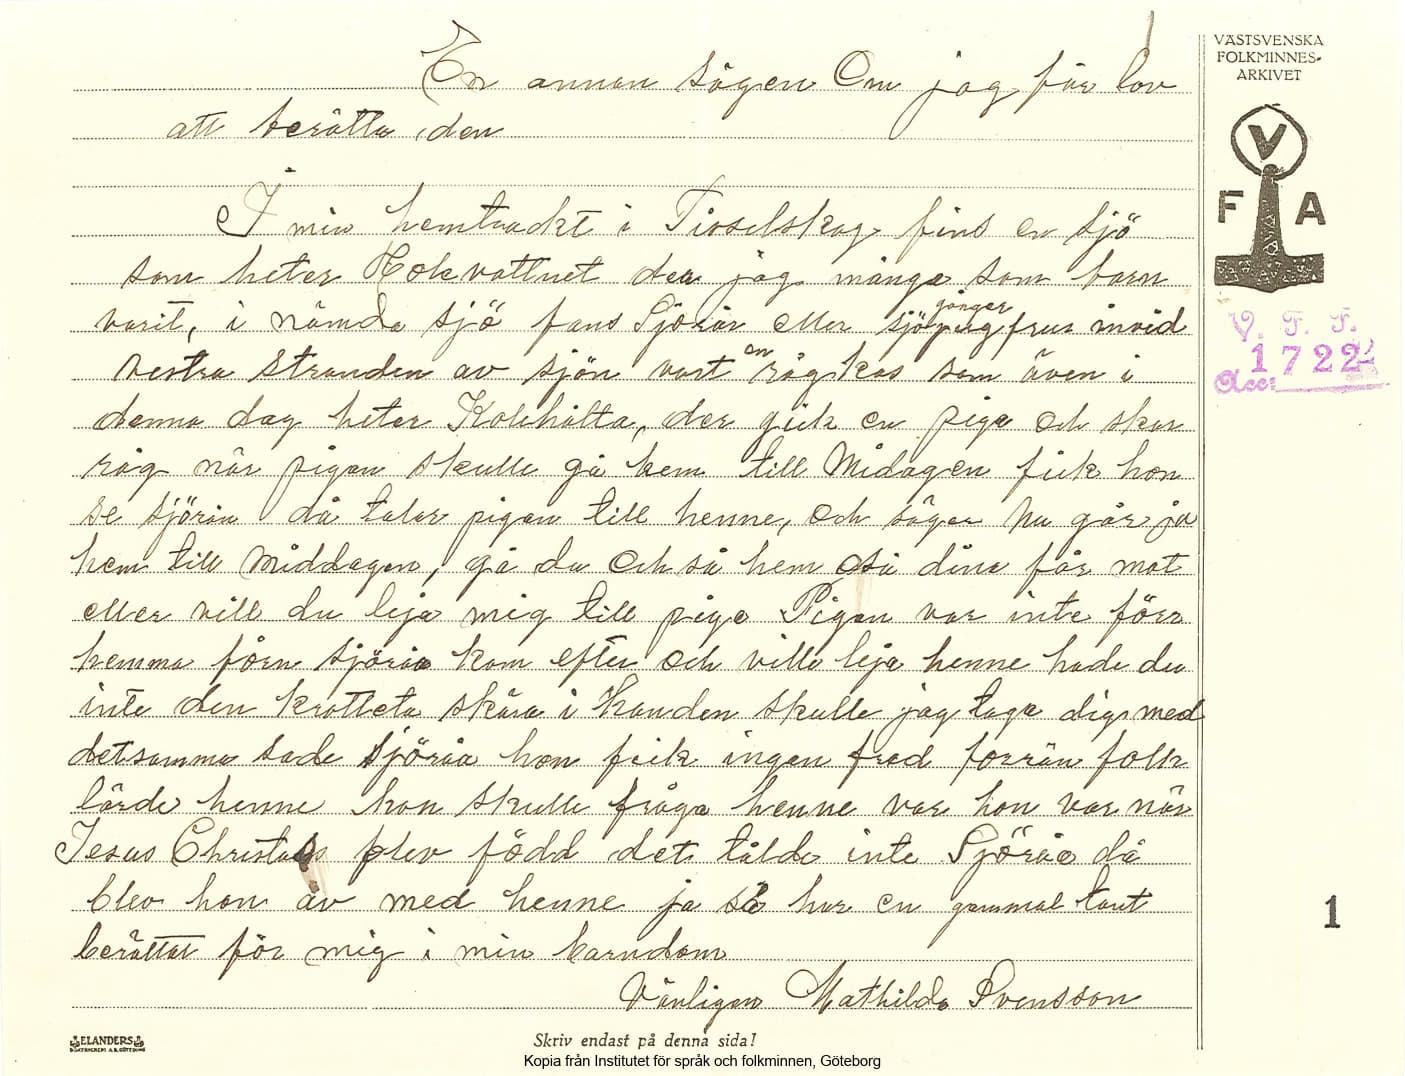 En annan sägen Om jag får lov
att berätta den
I min hemtrackt i Tisselskog fins en sjö
som heter Kolevattnet der jag många som barn
gånger
varit, i nämda sjö fans Sjörår eller sjö frur invid
vestra stranden av sjön vart en råg kas som även i
denna dag heter Kolehålta, der gick en piga och skar
råg när pigan skulle gå hem till Midagen fick hon
se sjöråa då talar pigan till henne, och säger nu går ja
hem till Middagen, gå du och så hem oså dine får mat
eller vill du leja mig till piga Pigan var inte förr
hemma förn sjöråa kom efter och ville leja henne hade du
inte den krotteta skära i Handen skulle jag taga dig med
detsamma sade sjöråa hon fick ingen fred förrän folk
lärde henne hon skulle fråga henne var hon var när
Jesus Christus blev född det tålde inte Sjöråa då
blev hon av med henne ja så har en gammal tant
berättat för mig i min barndom
Vänligen Mathilda Svensson
VÄSTSVENSKA
FOLKMINNES-
ARKIVET
V
F A
V. F. F.
Acc: 1722
1
ELANDERS
BOKTRYCKERI A.B. GÖTEBORG
Skriv endast på denna sida!
Kopia från Institutet för språk och folkminnen, Göteborg